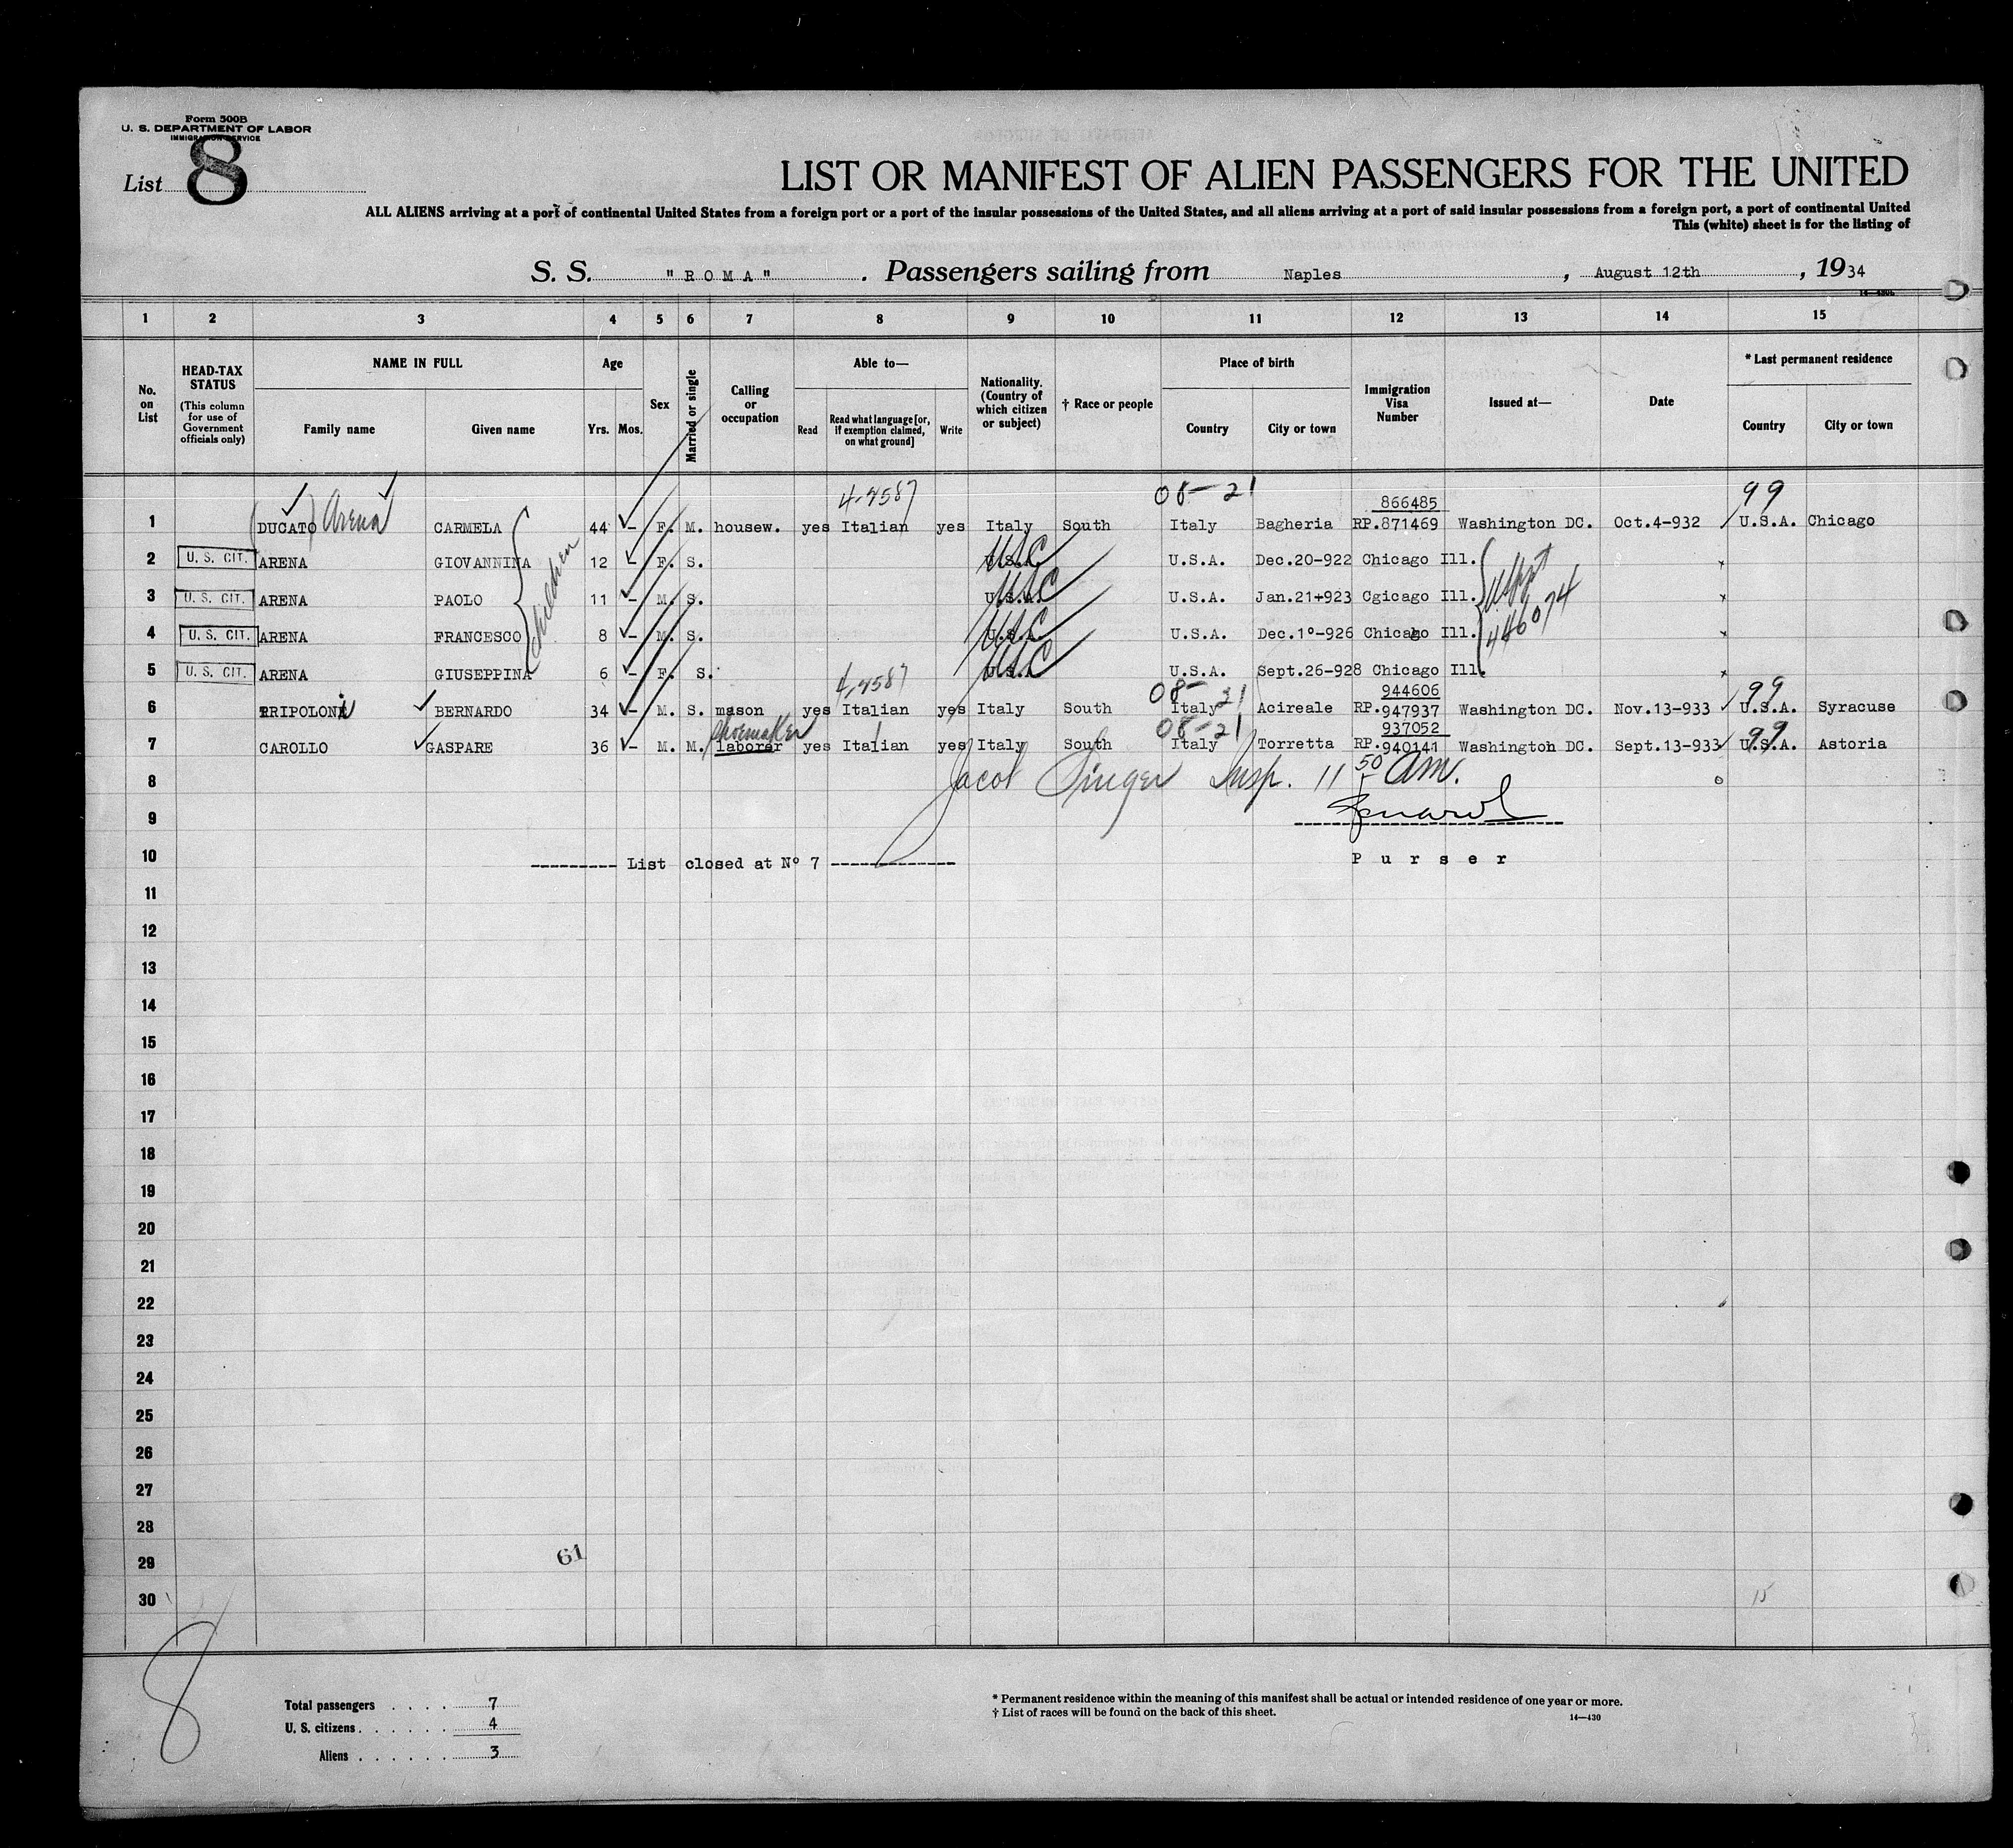 Form 500B
U. S. DEPARTMENT OF LABOR
IMMIGRATION SERVICE
List 8
LIST OR MANIFEST OF ALIEN PASSENGERS FOR THE UNITED
ALL ALIENS arriving at a port of continental United States from a foreign port or a port of the insular possessions of the United States, and all aliens arriving at a port of said insular possessions from a foreign port, a port of continental United
This (white) sheet is for the listing of
S. S. "ROMA". Passengers sailing from Naples, August 12th, 1934
1 2 3 4 5 6 7 8 9 10 11 12 13 14 15
No. on List
HEAD-TAX STATUS (This column for use of Government officials only)
NAME IN FULL
Family name Given name
Age
Yrs. Mos.
Sex
Married or single
Calling or occupation
Able to—
Read Read what language [or, if exemption claimed, on what ground] Write
Nationality. (Country of which citizen or subject)
† Race or people
Place of birth
Country City or town
Immigration Visa Number
Issued at—
Date
* Last permanent residence
Country City or town
4-4587 08-21 866485 99
1 (DUCATO) Arena CARMELA 44 - F. M. housew. yes Italian yes Italy South Italy Bagheria RP.871469 Washington DC. Oct.4-932 U.S.A. Chicago
2 U. S. CIT. ARENA GIOVANNINA 12 - F. S. U.S.A. USC U.S.A. Dec.20-922 Chicago Ill.
3 U. S. CIT. ARENA PAOLO 11 - M. S. U.S.A. USC U.S.A. Jan.21+923 Cgicago Ill.
4 U. S. CIT. ARENA FRANCESCO 8 - M. S. U.S.A. USC U.S.A. Dec.1º-926 Chicago Ill.
5 U. S. CIT. ARENA GIUSEPPINA 6 - F. S. U.S.A. USC U.S.A. Sept.26-928 Chicago Ill.
children
446074
4-4587 08-21 944606 99
6 TRIPOLONI BERNARDO 34 - M. S. mason yes Italian yes Italy South Italy Acireale RP.947937 Washington DC. Nov.13-933 U.S.A. Syracuse
shoemaker 08-21 937052 99
7 CAROLLO GASPARE 36 - M. M. laborer yes Italian yes Italy South Italy Torretta RP.940141 Washington DC. Sept.13-933 U.S.A. Astoria
8 Jacob Singer Insp. 11 50 AM.
9
10 List closed at Nº 7 Purser
11
12
13
14
15
16
17
18
19
20
21
22
23
24
25
26
27
28
29 61
30 15
8
Total passengers . . . . 7
U. S. citizens . . . . . 4
Aliens . . . . . . 3
* Permanent residence within the meaning of this manifest shall be actual or intended residence of one year or more.
† List of races will be found on the back of this sheet.
14—430